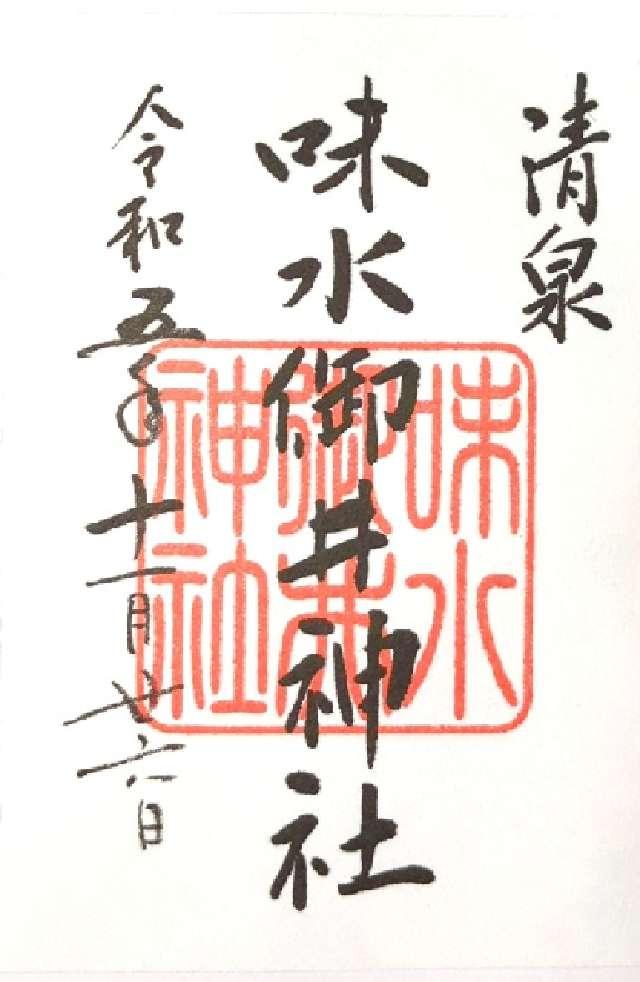 清泉
味水御井神社
令和五年十一月廿六日
味水
御井
神社